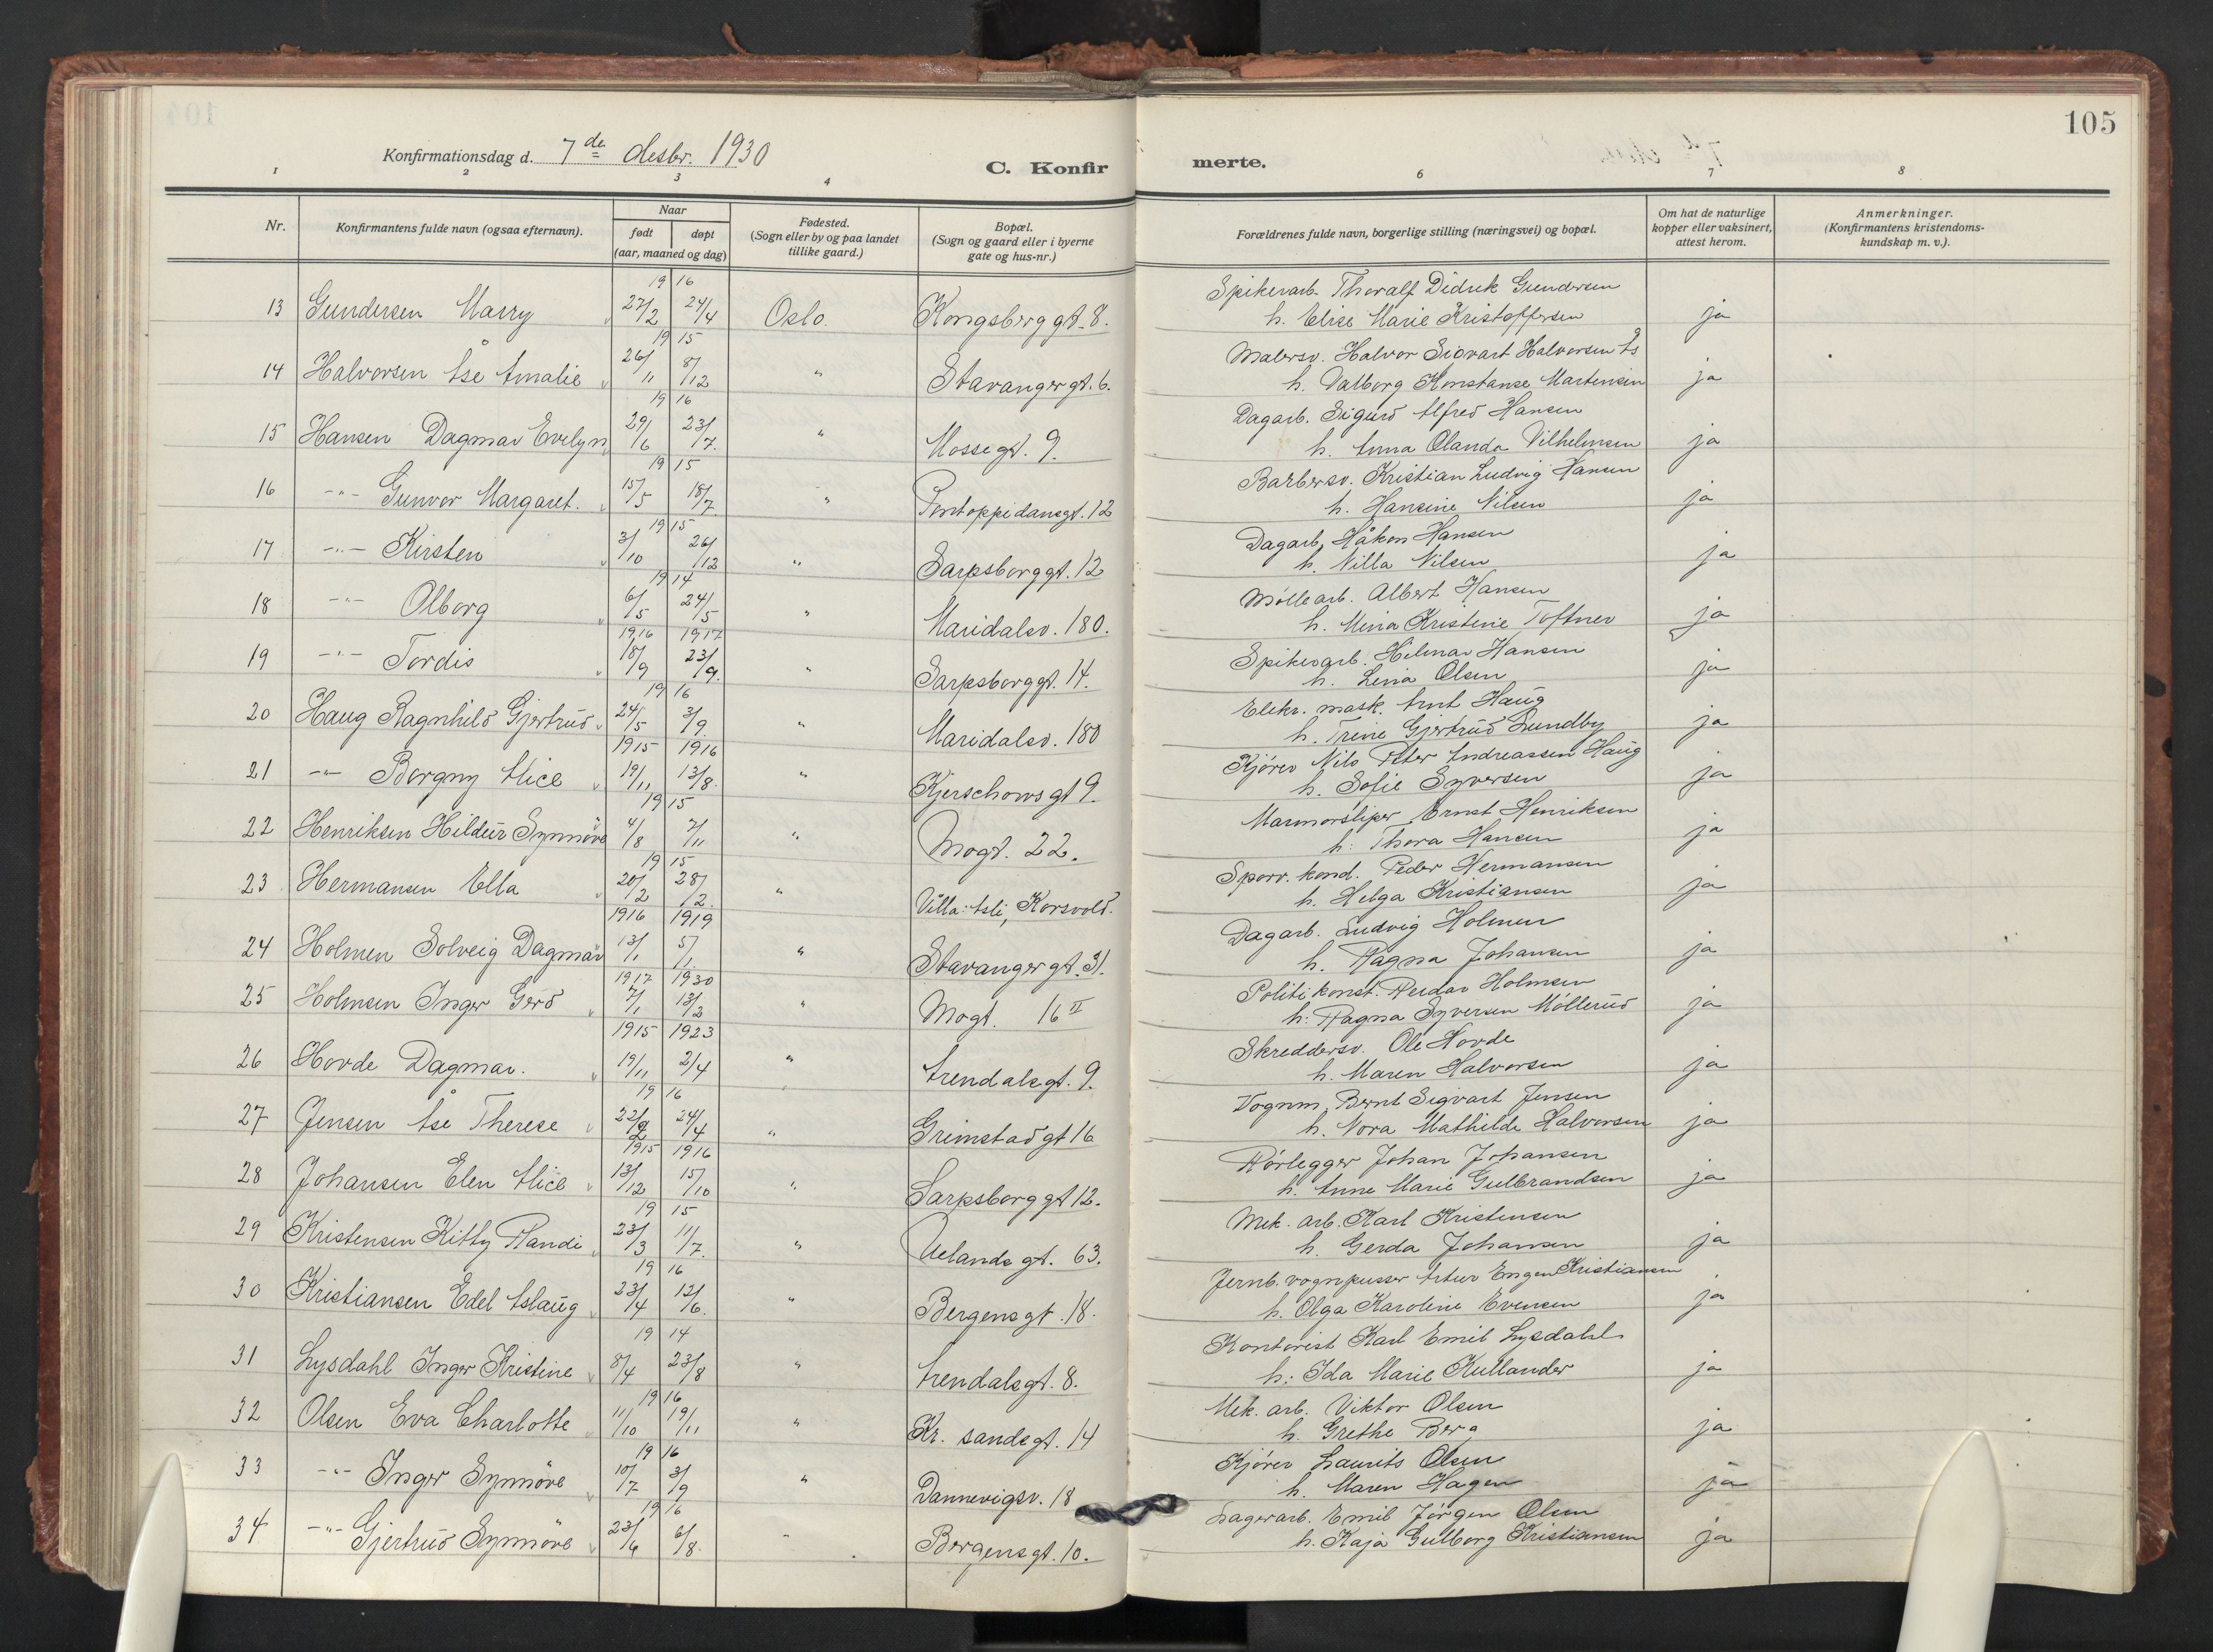 105
Konfirmationsdag d. 7de desbr. 1930
C. Konfir merte.
1 2 3 4 6 7 8
Nr.
Konfirmantens fulde navn (ogsaa efternavn).
Naar
født døpt
(aar, maaned og dag)
Fødested.
(Sogn eller by og paa landet
tillike gaard.)
Bopæl.
(Sogn og gaard eller i byerne
gate og hus-nr.)
Forældrenes fulde navn, borgerlige stilling (næringsvei) og bopæl.
Om hat de naturlige
kopper eller vaksinert,
attest herom.
Anmerkninger.
(Konfirmantens kristendoms-
kundskap m. v.).
19 16 Spikerarb. Thoralf Didrik Gundersen
13 Gundersen Marry 27/2 24/4 Oslo. Kongsberg gt. 8. h. Elise Marie Kristoffersen ja
19 15 Malersv. Halvor Sigvart Halvorsen
14 Halvorsen Åse Amalie 26/11 8/12 " Stavanger gt. 6. h. Valborg Konstanse Martensen ja
19 16 Dagarb. Sigurd Alfred Hansen
15 Hansen Dagmar Evelyn 29/6 23/7. " Mosse gt. 9. h. Anna Olanda Vilhelmsen ja
19 15 Barbersv. Kristian Ludvig Hansen
16 -"- Gunvor Margaret. 15/5 18/7. " Pontoppidansgt. 12 h. Hansine Nilsen ja
19 15 Dagarb. Håkon Hansen
17 -"- Kirsten 3/10 26/12 " Sarpsborg gt. 12 h. Nilla Nilsen ja
19 14 Møllearb. Albert Hansen
18 -"- Olborg 6/5 24/5 " Maridalsv. 180. h. Mina Kristine Toftner ja
1916 1917 Spikerarb. Hilmar Hansen
19 -"- Tordis 18/9 23/9. " Sarpsborg gt. 14. h. Lina Olsen ja
19 16 Elekr. mask. Arnt Haug
20 Haug Ragnhild Gjertrud 24/5 3/9. " Maridalsv. 180 h. Trine Gjertrud Lundby ja
1915 1916 Kjører Nils Peter Andreassen Haug
21 -"- Borgny Alice 19/11 13/8. " Kjerschows gt 9. h. Sofie Syversen ja
19 15 Marmorsliper Ernst Henriksen
22 Henriksen Hildur Synnöve 4/8 7/11 " Mogt. 22. h. Thora Hansen ja
19 15 Sporv. kond. Peder Hermansen
23 Hermansen Ella 20/2 28/2. " Villa: Åsli, Korsvold. h. Helga Kristiansen ja
1916 1919 Dagarb. Ludvig Holmen
24 Holmen Solveig Dagmar 13/1 5/1. " Stavanger gt. 31. h. Ragna Johansen ja
1917 1930 Politikonst. Reidar Holmsen
25 Holmsen Inger Gerd 7/1 13/2 " Mogt. 16 II h. Ragna Syversen Møllerud ja
1915 1923 Skreddersv. Ole Hovde
26 Hovde Dagmar. 19/11 2/4 " Arendalsgt. 9. h. Maren Halvorsen ja
19 16 Vognm. Bernt Sigvart Jensen
27 Jensen Åse Therese 22/2 24/4 " Grimstad gt 16 h. Nora Mathilde Halvorsen ja
1915 1916 Rørlegger Johan Johansen
28 Johansen Elen Alice 13/12 15/10 " Sarpsborg gt 12. h. Anne Marie Gulbrandsen ja
19 15 Mek. arb. Karl Kristensen
29 Kristensen Kitty Randi 23/3 11/7. " Uelands gt. 63. h. Gerda Johansen ja
19 16 Jernb. vognpusser Artur Engen Kristiansen
30 Kristiansen Edel Aslaug 23/4 12/6. " Bergens gt. 18. h. Olga Karoline Evensen ja
19 14 Kontorist Karl Emil Lysdahl
31 Lysdahl Inger Kristine 8/4 23/8 " Arendalsgt. 8. h. Ida Marie Kullander ja
19 16 Mek. arb. Viktor Olsen
32 Olsen Eva Charlotte 11/10 19/11 " Kr. sandsgt. 14 h. Grethe Berg ja
19 16 Kjører Laurits Olsen
33 -"- Inger Synnöve 10/7 3/9 " Dannevigsv. 18 h. Maren Hagen ja
19 16 Lagerarb. Emil Jörgen Olsen
34 -"- Gjertrud Synnöve 23/6 6/8. - Bergens gt. 10. h. Kaja Gulborg Kristiansen ja